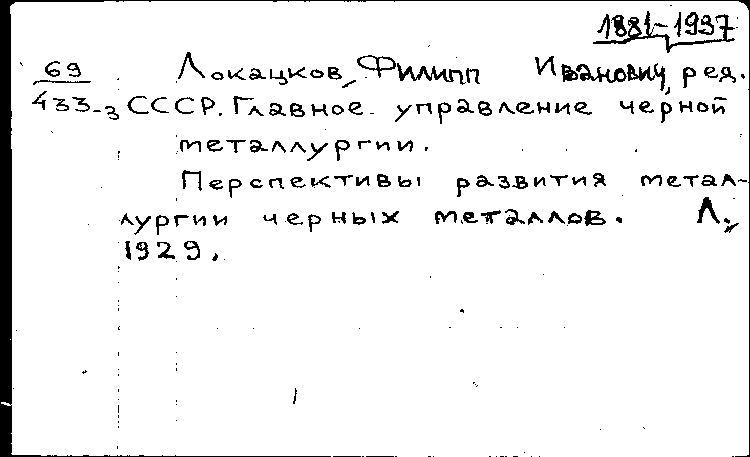 1881-1937
69 Локацков, Филипп Иванович, ред.
433-3 СССР. Главное управление черной
металлургии.
Перспективы развития метал-
лургии черных металлов. Л.,
1929.